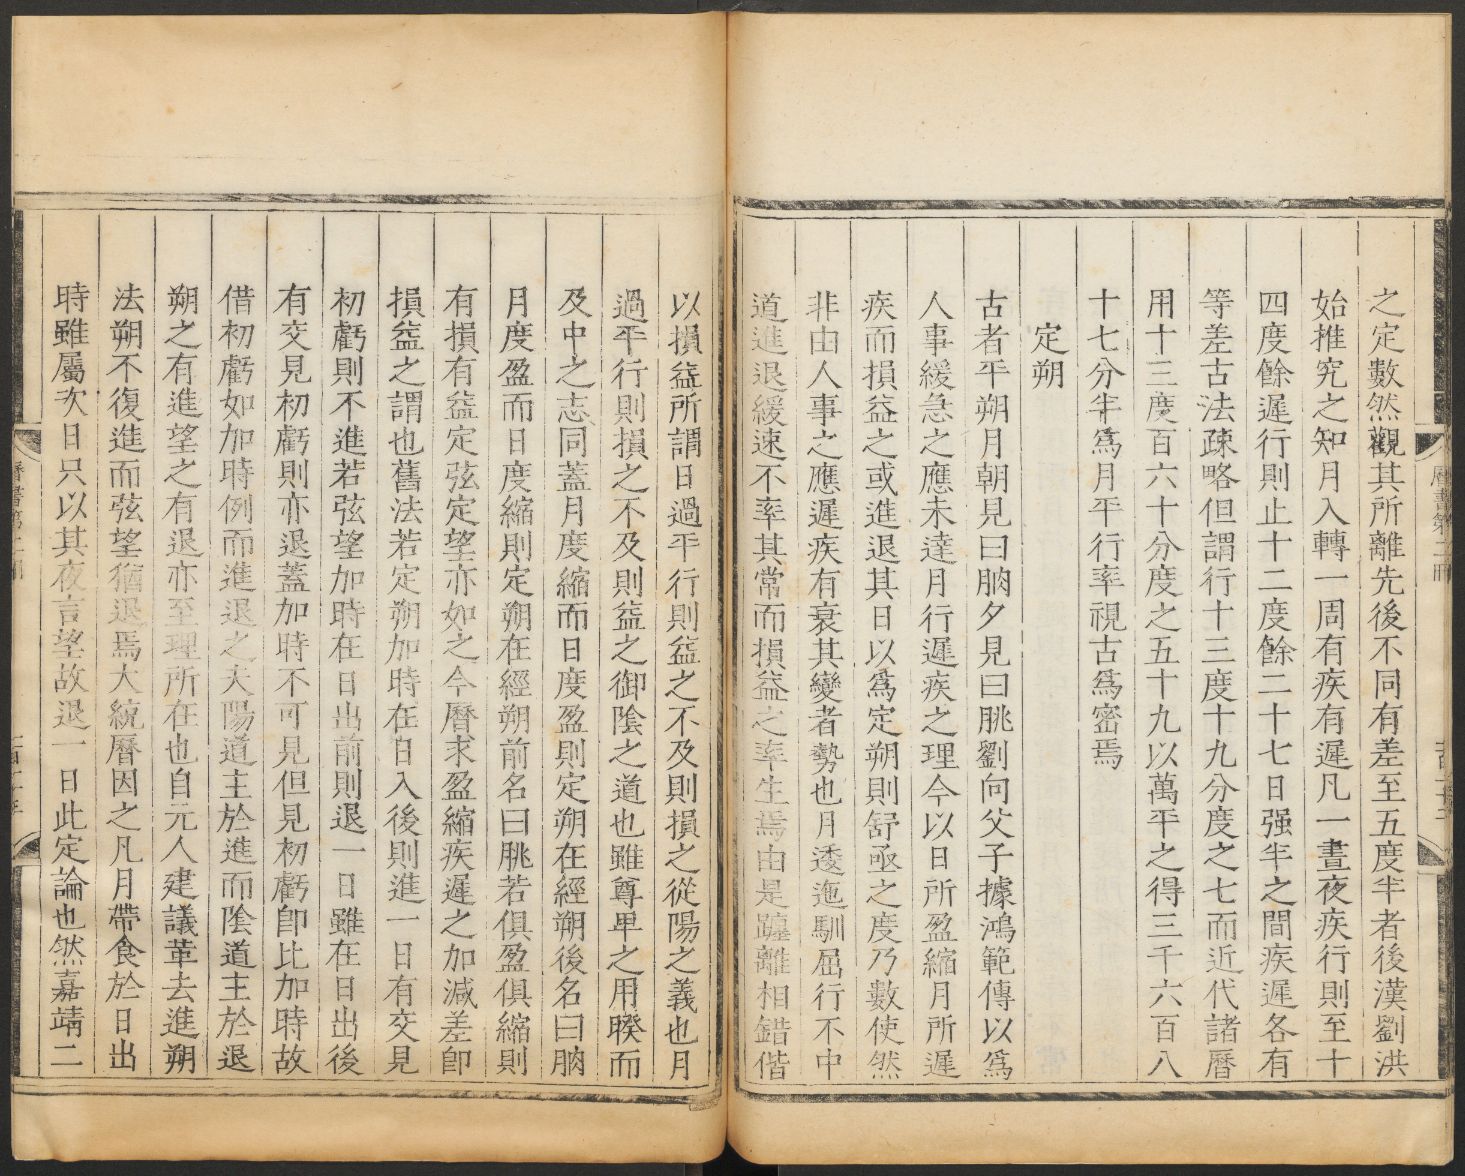 之定數然觀其所離先後不同有差至五度半者後漢劉洪
始推究之知月入轉一周有疾有遲凡一晝夜疾行則至十
四度餘遲行則止十二度餘二十七日强半之間疾遲各有
等差古法疎略但謂行十三度十九分度之七而近代諸曆
用十三度百六十分度之五十九以萬平之得三千六百八
十七分半爲月平行率視古爲密焉
定朔
古者平朔月朝見曰朒夕見曰朓劉向父子據鴻範傳以爲
人事緩急之應未達月行遲疾之理今以日所盈縮月所遲
疾而損益之或進退其日以爲定朔則舒亟之度乃數使然
非由人事之應遲疾有衰其變者勢也月逶迤馴屈行不中
道進退緩速不率其常而損益之率生焉由是躔離相錯偕
以損益所謂日過平行則益之不及則損之從陽之義也月
過平行則損之不及則益之御陰之道也雖尊卑之用睽而
及中之志同蓋月度縮而日度盈則定朔在經朔後名曰朒
月度盈而日度縮則定朔在經朔前名曰朓若俱盈俱縮則
有損有益定弦定望亦如之今曆求盈縮疾遲之加減差卽
損益之謂也舊法若定朔加時在日入後則進一日有交見
初虧則不進若弦望加時在日出前則退一日雖在日出後
有交見初虧則亦退蓋加時不可見但見初虧卽比加時故
借初虧如加時例而進退之夫陽道主於進而陰道主於退
朔之有進望之有退亦至理所在也自元人建議革去進朔
法朔不復進而弦望猶退焉大統曆因之凡月帶食於日出
時雖屬次日只以其夜言望故退一日此定論也然嘉靖二